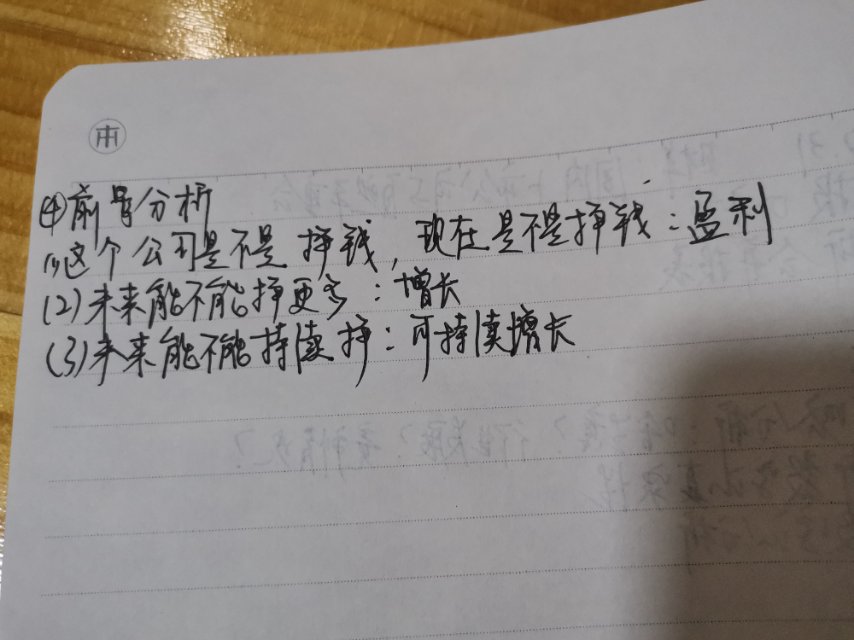 ④前景分析
(1)这个公司是不是挣钱,现在是不是挣钱:盈利
(2)未来能不能挣更多:增长
(3)未来能不能持续挣:可持续增长